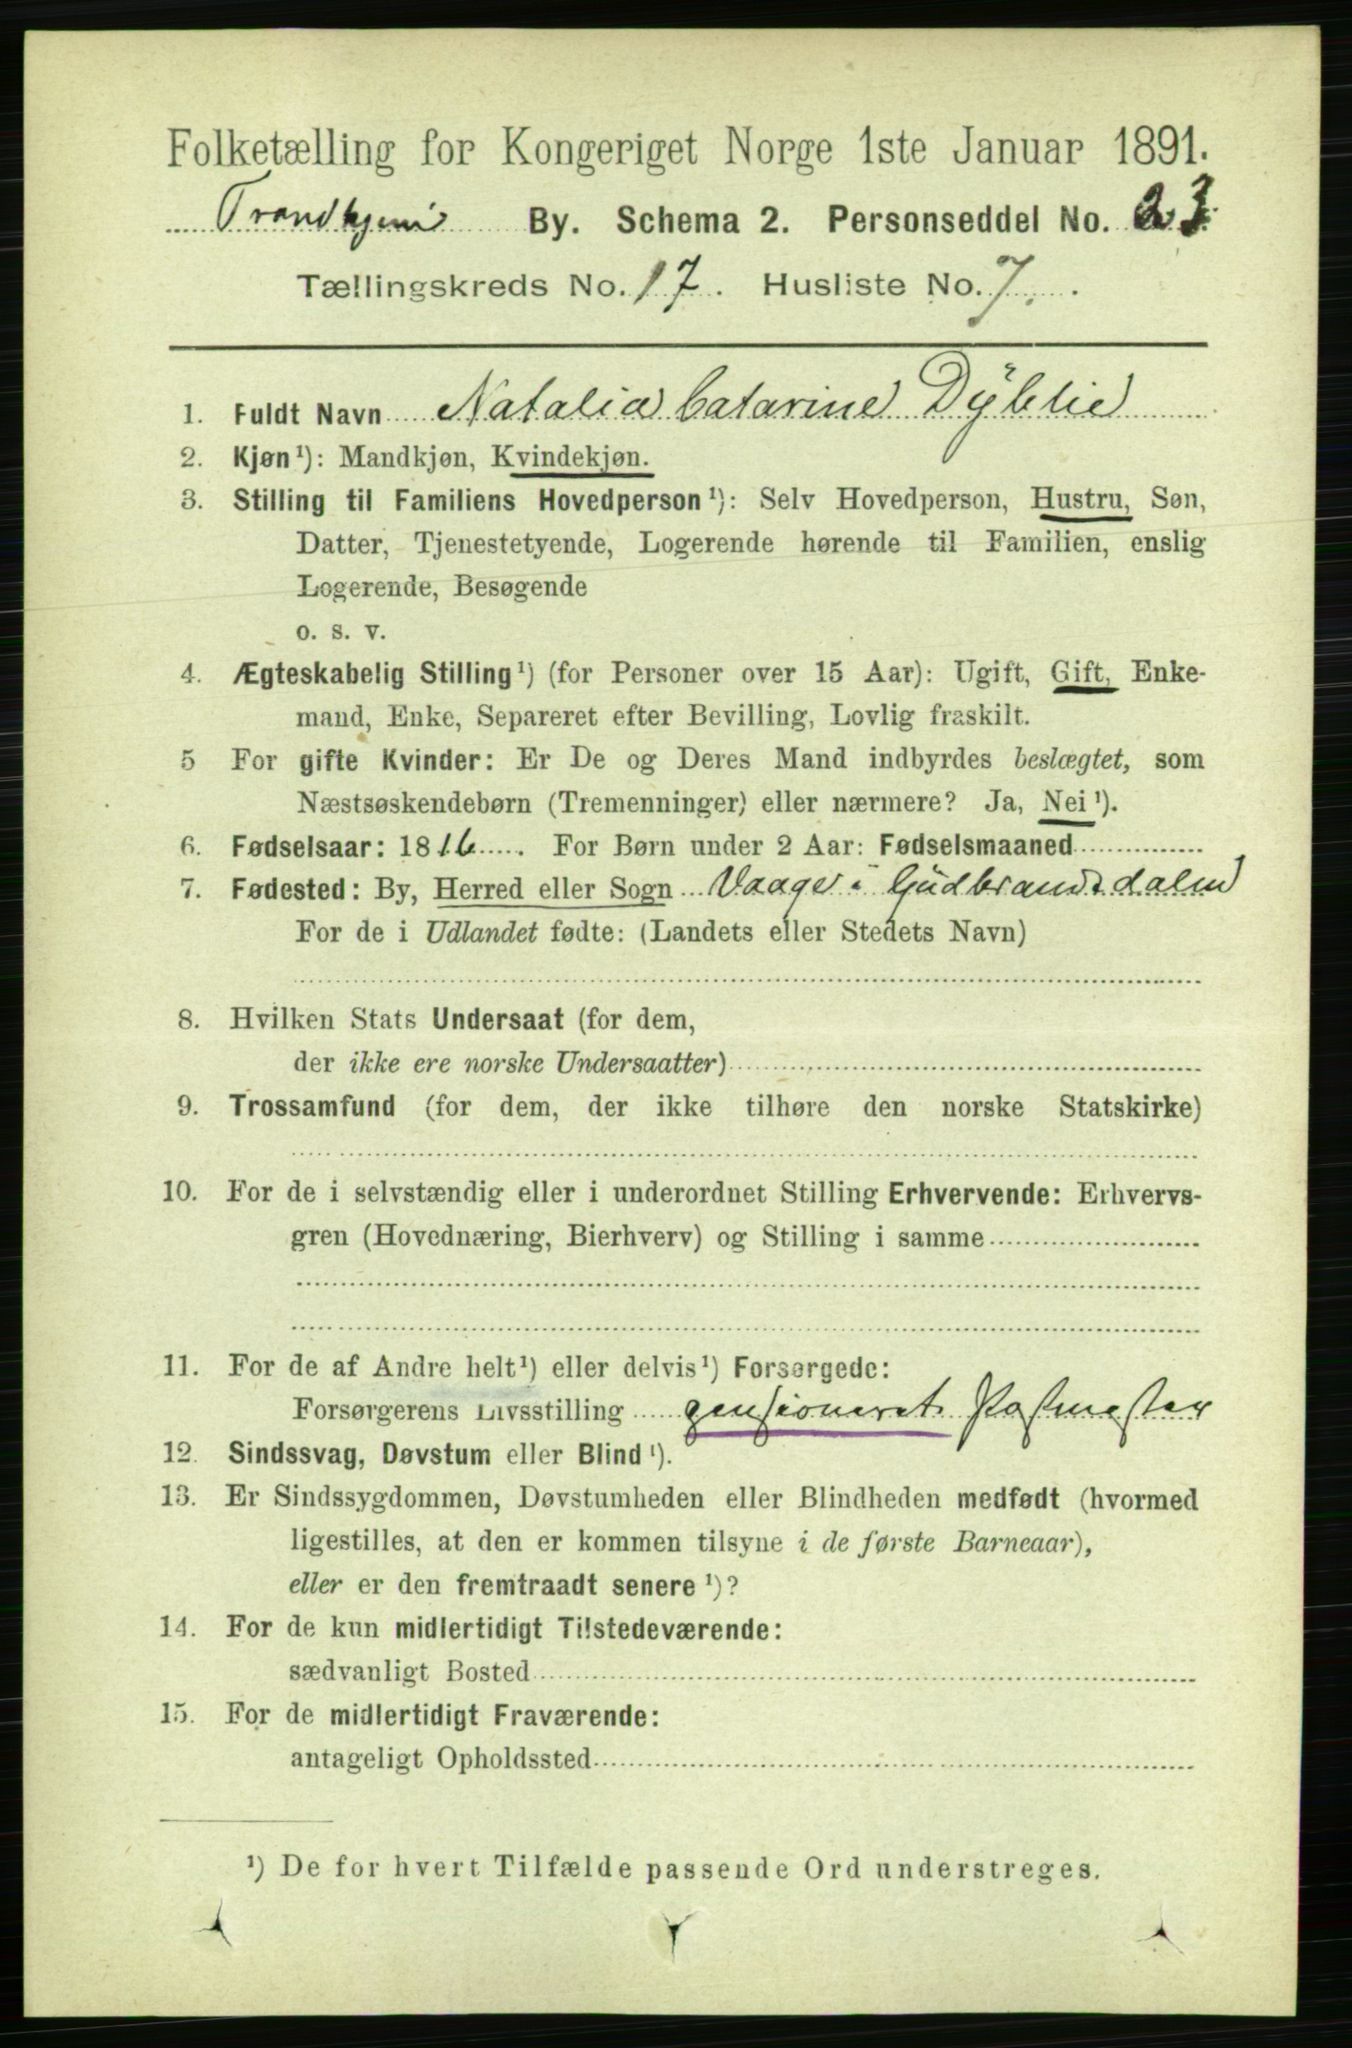 Folketælling for Kongeriget Norge 1ste Januar 1891.
Trondhjem By. Schema 2. Personseddel No. 23.
Tællingskreds No. 17. Husliste No. 7.
1. Fuldt Navn Natalia Catarine Dÿblie
2. Kjøn¹): Mandkjøn, Kvindekjøn.
3. Stilling til Familiens Hovedperson¹): Selv Hovedperson, Hustru, Søn,
Datter, Tjenestetyende, Logerende hørende til Familien, enslig
Logerende, Besøgende
o. s. v.
4. Ægteskabelig Stilling¹) (for Personer over 15 Aar): Ugift, Gift, Enke-
mand, Enke, Separeret efter Bevilling, Lovlig fraskilt.
5 For gifte Kvinder: Er De og Deres Mand indbyrdes beslægtet, som
Næstsøskendebørn (Tremenninger) eller nærmere? Ja, Nei¹).
6. Fødselsaar: 1816. For Børn under 2 Aar: Fødselsmaaned
7. Fødested: By, Herred eller Sogn Vaage i Gudbrandsdalen
For de i Udlandet fødte: (Landets eller Stedets Navn)
8. Hvilken Stats Undersaat (for dem,
der ikke ere norske Undersaatter)
9. Trossamfund (for dem, der ikke tilhøre den norske Statskirke)
10. For de i selvstændig eller i underordnet Stilling Erhvervende: Erhvervs-
gren (Hovednæring, Bierhverv) og Stilling i samme
11. For de af Andre helt¹) eller delvis¹) Forsørgede:
Forsørgerens Livsstilling pensioneret Postmester
12. Sindssvag, Døvstum eller Blind¹).
13. Er Sindssygdommen, Døvstumheden eller Blindheden medfødt (hvormed
ligestilles, at den er kommen tilsyne i de første Barneaar),
eller er den fremtraadt senere¹)?
14. For de kun midlertidigt Tilstedeværende:
sædvanligt Bosted
15. For de midlertidigt Fraværende:
antageligt Opholdssted
¹) De for hvert Tilfælde passende Ord understreges.